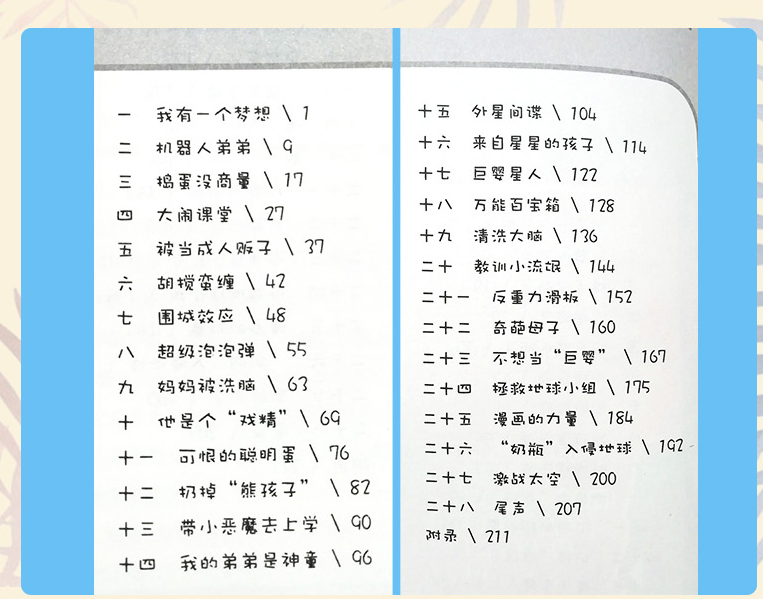 一 我有一个梦想 \ 1
二 机器人弟弟 \ 9
三 捣蛋没商量 \ 17
四 大闹课堂 \ 27
五 被当成人贩子 \ 37
六 胡搅蛮缠 \ 42
七 围城效应 \ 48
八 超级泡泡弹 \ 55
九 妈妈被洗脑 \ 63
十 他是个“戏精” \ 69
十一 可恨的聪明蛋 \ 76
十二 扔掉“熊孩子” \ 82
十三 带小恶魔去上学 \ 90
十四 我的弟弟是神童 \ 96
十五 外星间谍 \ 104
十六 来自星星的孩子 \ 114
十七 巨婴星人 \ 122
十八 万能百宝箱 \ 128
十九 清洗大脑 \ 136
二十 教训小流氓 \ 144
二十一 反重力滑板 \ 152
二十二 奇葩母子 \ 160
二十三 不想当“巨婴” \ 167
二十四 拯救地球小组 \ 175
二十五 漫画的力量 \ 184
二十六 “奶瓶”入侵地球 \ 192
二十七 激战太空 \ 200
二十八 尾声 \ 207
附录 \ 211